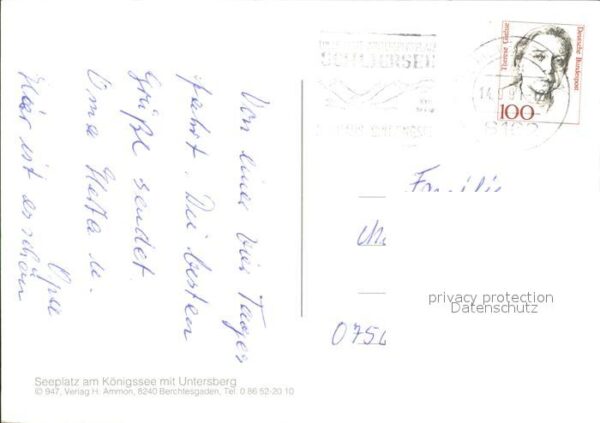 Von einer vier Tages
fahrt. Die besten
Grüße sendet
Oma Herta u.
Opa
Hier ist es schön
SCHLIERSEE
Therese Giehse
Deutsche Bundespost
100
8162
Familie
075
privacy protection
Datenschutz
Seeplatz am Königssee mit Untersberg
© 947, Verlag H. Ammon, 8240 Berchtesgaden, Tel. 0 86 52-20 10